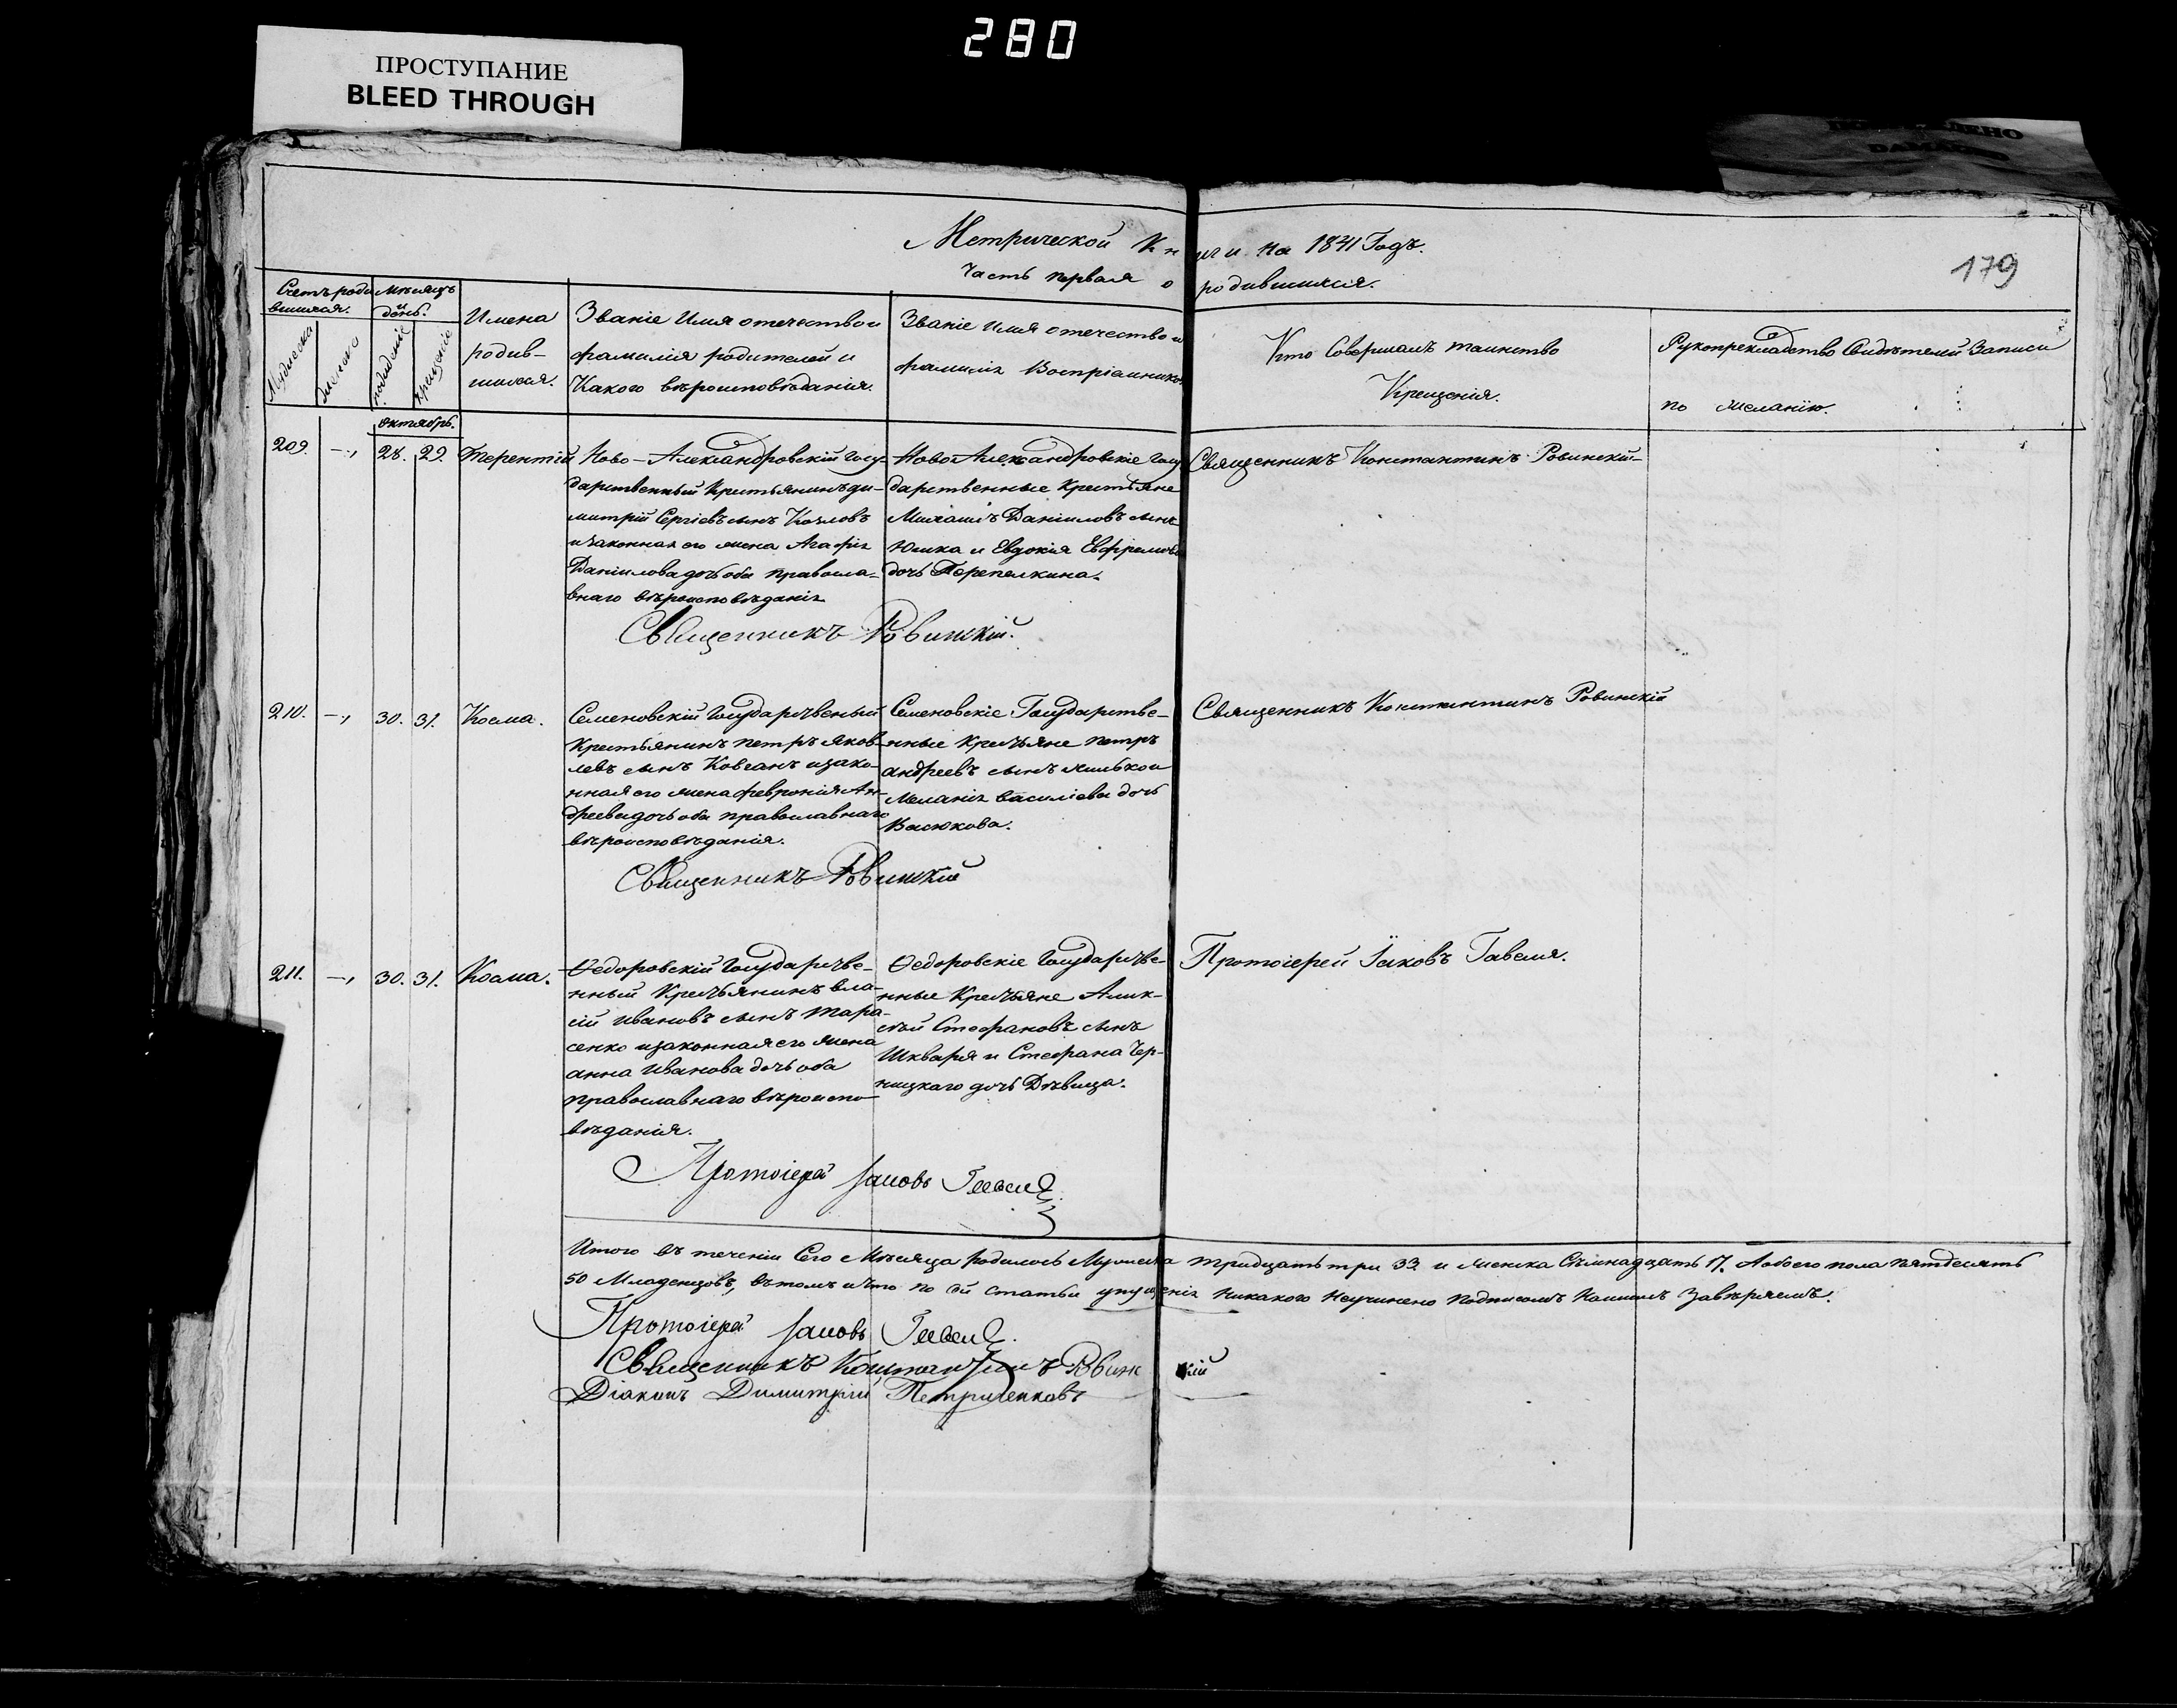 280
ПРОСТУПАНИЕ
BLEED THROUGH
Метрической Книги на 1841 Годъ.
Часть первая о родившихся.
179
Счетъ родившихся.
Мужеска
Женска
Мѣсяцъ и день.
рожденiе
крещенiе
Имена
родив-
шихся.
Званiе Имя отечество и
фамилiя родителей и
Какого вѣроисповѣданiя.
Званiе имя отечество и
фамилiя Воспрiемниковъ
Кто Совершалъ таинство
Крещенiя.
Рукоприкладство Свидѣтелей Записи
по желанiю.
Октябрь.
209. —, 28. 29. Терентiй
Ново-Александровскiй госу-
дарственный Крестьянинъ Ди-
митрiй Сергiевъ сынъ Козловъ
и законная его жена Агафiя
Данiилова дочь оба правосла-
внаго вѣроисповѣданiя
Ново Александровскiе госу
дарственные Крестьяне
Михаилъ Данiиловъ сынъ
Юшка и Евдокiя Евфремова
дочь Перепелкина.
Священникъ Константинъ Ровинскiй
Священникъ Ровинскiй.
210. —, 30. 31. Косма.
Семеновскiй государственый
Крестьянинъ петръ яков-
левъ сынъ Ковганъ и зако-
нная его жена февронiя Ан-
дреева дочь оба православнаго
вѣроисповѣданiя.
Семеновскiе Государстве-
нные Крестьяне петръ
андреевъ сынъ
Меланiя василiева дочь
Васюкова.
Священникъ Константинъ Ровинскiй
Священникъ Ровинскiй
211. —, 30. 31. Косма.
Ѳедоровскiй государстве-
нный Крестьянинъ вла-
сiй ивановъ сынъ Тара-
сенко и законная его жена
анна Иванова дочь оба
православнаго вѣроиспо-
вѣданiя.
Ѳедоровскiе государстве-
нные Крестьяне Алик-
сѣй Стефановъ сынъ
Шкваря и Стефана Чер-
ницкаго дочь Дѣвица.
Протоiерей Iаковъ Гавеля.
Протоiерей Iаковъ Гавеля
Итого въ теченiи Сего Мѣсяца родилось Мужеска тридцать три 33 и женска Семнадцать 17. А обоего пола пятдесять
50 Младенцовъ, въ томъ и что по сей статьи упущенiя никакого неучинено подписомъ нашимъ Завѣряемъ.
Протоiерей Iаковъ Гавеля.
Священникъ Константинъ Ровинскiй
Дiаконъ Димитрiй Петриченковъ